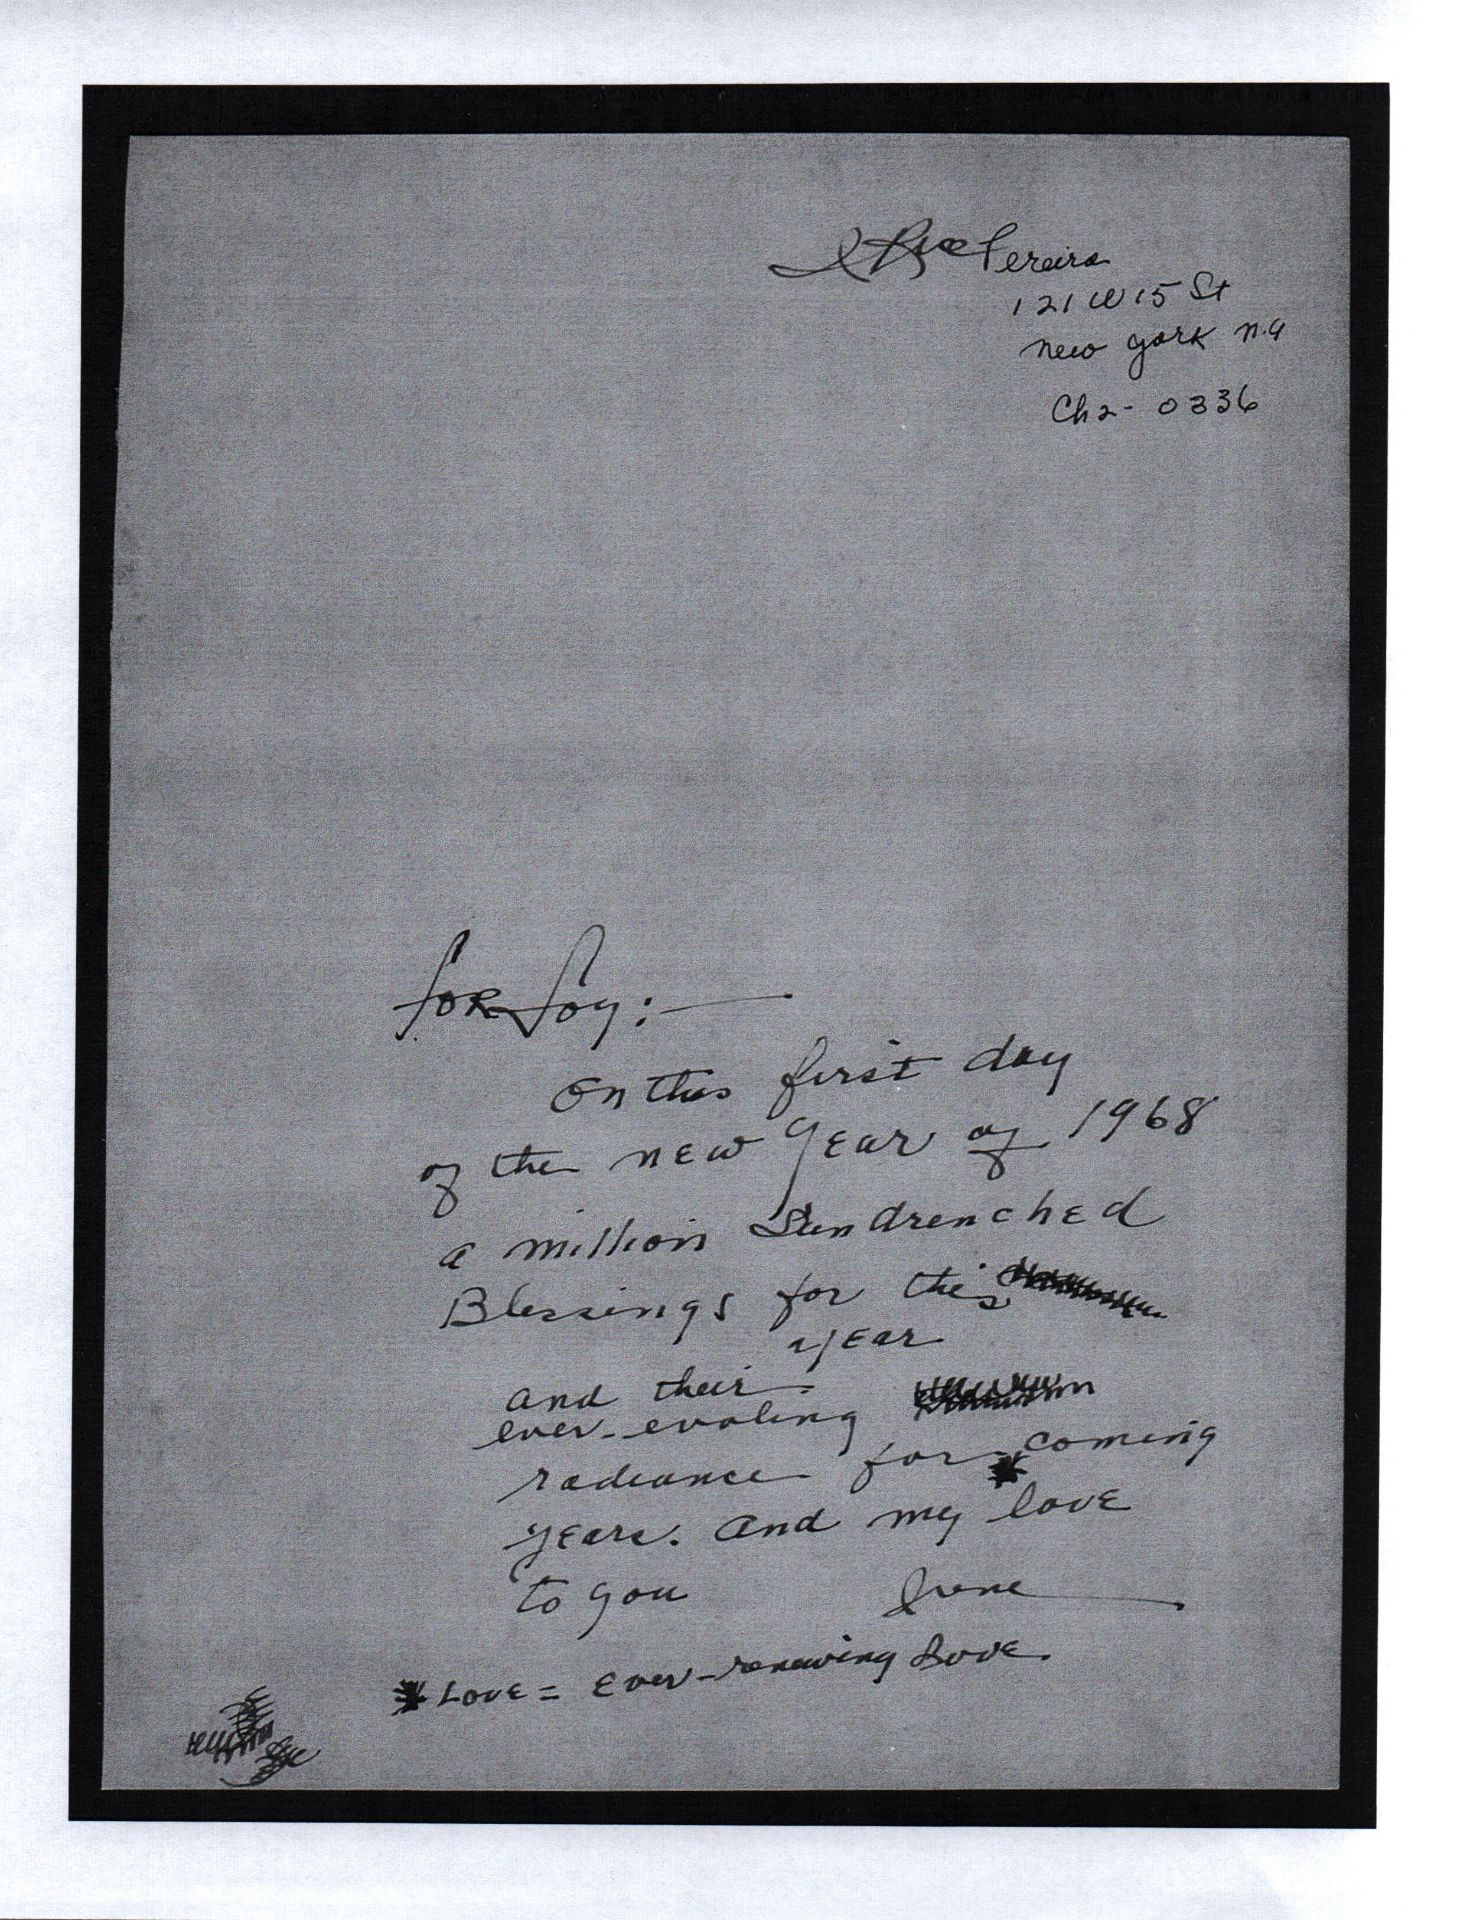 I Rice Pereira
121 W 15 St
New York N.Y
Ch 2- 0336
for Joy:—
On this first day
of the new Year of 1968
a million Sundrenched
Blessings for this
year
and their
ever-evolving
radiance for coming
years. And my *love
to you Irene
*Love = Ever-renewing Love.